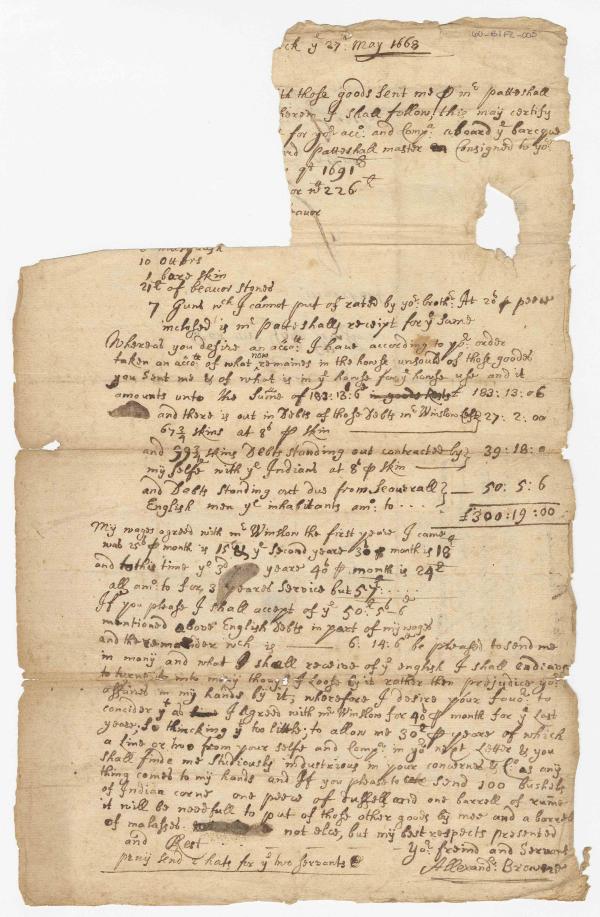 60-BTF2-005
ck yͤ 27ᵗʰ May 1668
ith those goods sent me ⅌ mʳ patteshall
herein yᵗ shall follow, this may certify
for yoʳ accᵗ. and Compᵃ. aboard yᵉ barcque
ard patteshall master Consigned to yoʳ
qᵗ 1691
or nᵗ 226
eavor
musquash
10 Otters
1 bare skin
21ˡᵇ of beavor stoned
7 Guns wᶜʰ I cannot put of rated by yoʳ brothʳ. At 20ˢ ⅌ peece
inclosed is mʳ patteshalls receipt for yᵉ same
Whereas you desire an accoᵗ. I have according to yoʳ order
taken an accoᵗ of what now remaines in the house unsould of those goods
you sent me & of what is in yᵉ house foryᵉ house use and it
amounts unto the Sume of 183:13:6 183:13:06
and there is out in Debts of those Debts mʳ Winslow left 27: 2: 00
67¾ skins at 8ˢ ⅌ skin
and 99¾ skins Debts standing out contracted by 39: 18: 0
my selfe with yᵉ Indians at 8ˢ ⅌ skin
and Debts standing out due from Seouerall 50: 5: 6
English men yᵉ inhabitants amᵗ. to
£300:19:00
My wages agreed with mʳ Winslow the first yeare I came
was 25ˢ ⅌ month is 15ˡᵇ yᵉ second yeare 30ˢ ⅌ month is 18
and to this time yᵉ 3ᵈ yeare 40ˢ ⅌ month is 24ˡᵇ
all amᵗ. to for 3 yeares service but 57ˡᵇ
If you please I shall accept of yᵉ 50ˡᵇ: 5ˢ: 6
mentioned above English Debts in part of my wages
and the remainder wᶜʰ is 6: 14: 6 be pleased to send me
in mony and what I shall receive of yᵉ english I shall endeavr
to turne it into mony though I Loose by it rather then prejudice yoʳ
affaires in my hands by it; wherefore I desire your favoʳ. to
concider yᵗ as I agreed with mʳ Winslow for 40ˢ ⅌ month for yᵉ Last
yeare, So thincking yᵗ too little; to allow me 30ˡᵇ ⅌ yeare of which
a line or two from your selfe and Compᵃ. in yoʳ next Letter & you
shall finde me studiously industrious in your concernes & as any
thing comes to my hands and If you please to send 100 bushels
of Indian corne one peece of duffell and one barrell of rume
it will be needfull to put of those other goods by mee and a barrel
of malasses. not else, but my best respects presented
and Rest yoʳ. freind and Servant
pray send 2 hats for yᵉ two servants Allexandʳ. Browne